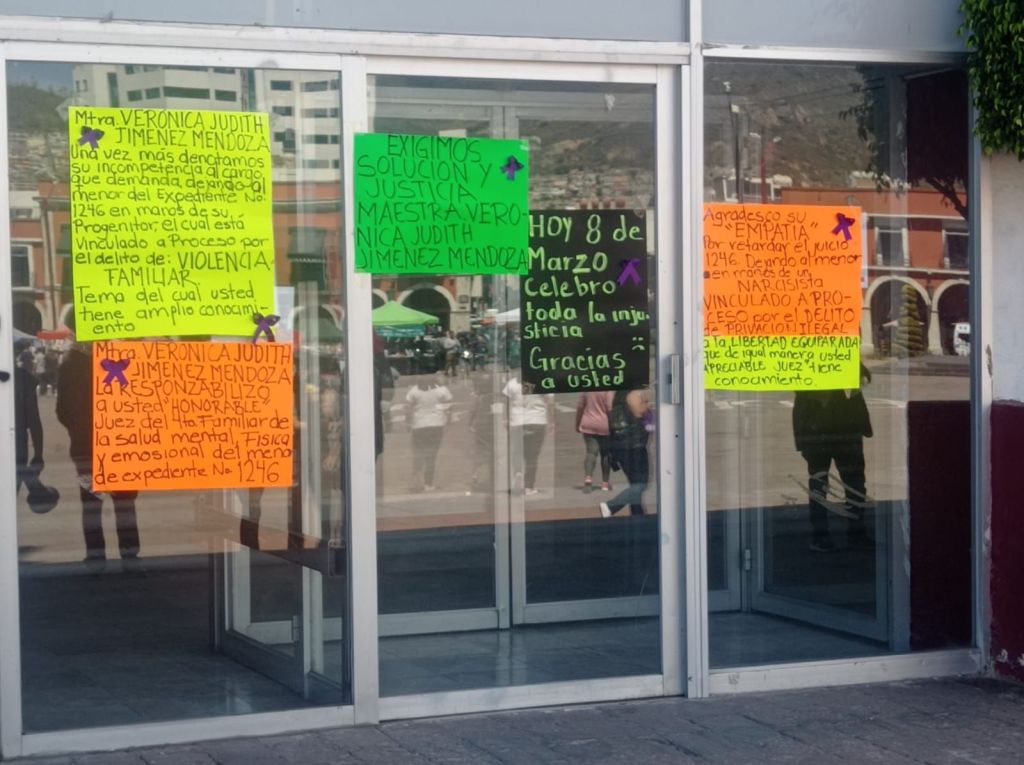 Mtra. VERÓNICA JUDITH
JIMENEZ MENDOZA
Una vez más denotamos
su incompetencia al cargo,
que demanda, dejando al
menor del Expediente No.
1246 en manos de su
Progenitor, el cual está
Vinculado a Proceso por
el delito de: VIOLENCIA
FAMILIAR.
Tema del cual usted
tiene amplio conocimi-
ento
Mtra. VERÓNICA JUDITH
JIMENEZ MENDOZA
LA RESPONZABILIZO
a usted "HONORABLE"
Juez del 4to Familiar de
la salud mental, FISICA
y emosional del meno
de expediente No 1246
EXIGIMOS
SOLUCION Y
JUSTICIA
MAESTRA VERO-
NICA JUDITH
JIMENEZ MENDOZA
HOY 8 de
Marzo
Celebro
toda la inju-
sticia :(
Gracias
a usted
Agradesco su
"EMPATIA"
Por retardar el juicio
1246. Dejando al menor
en manos de un
NARCISISTA
VINCULADO A PRO-
CESO por el DELITO
de PRIVACION ILEGAL
la LIBERTAD EQUIPARADA
que de igual manera usted
APRECIABLE JUEZ" tiene
conocimiento.